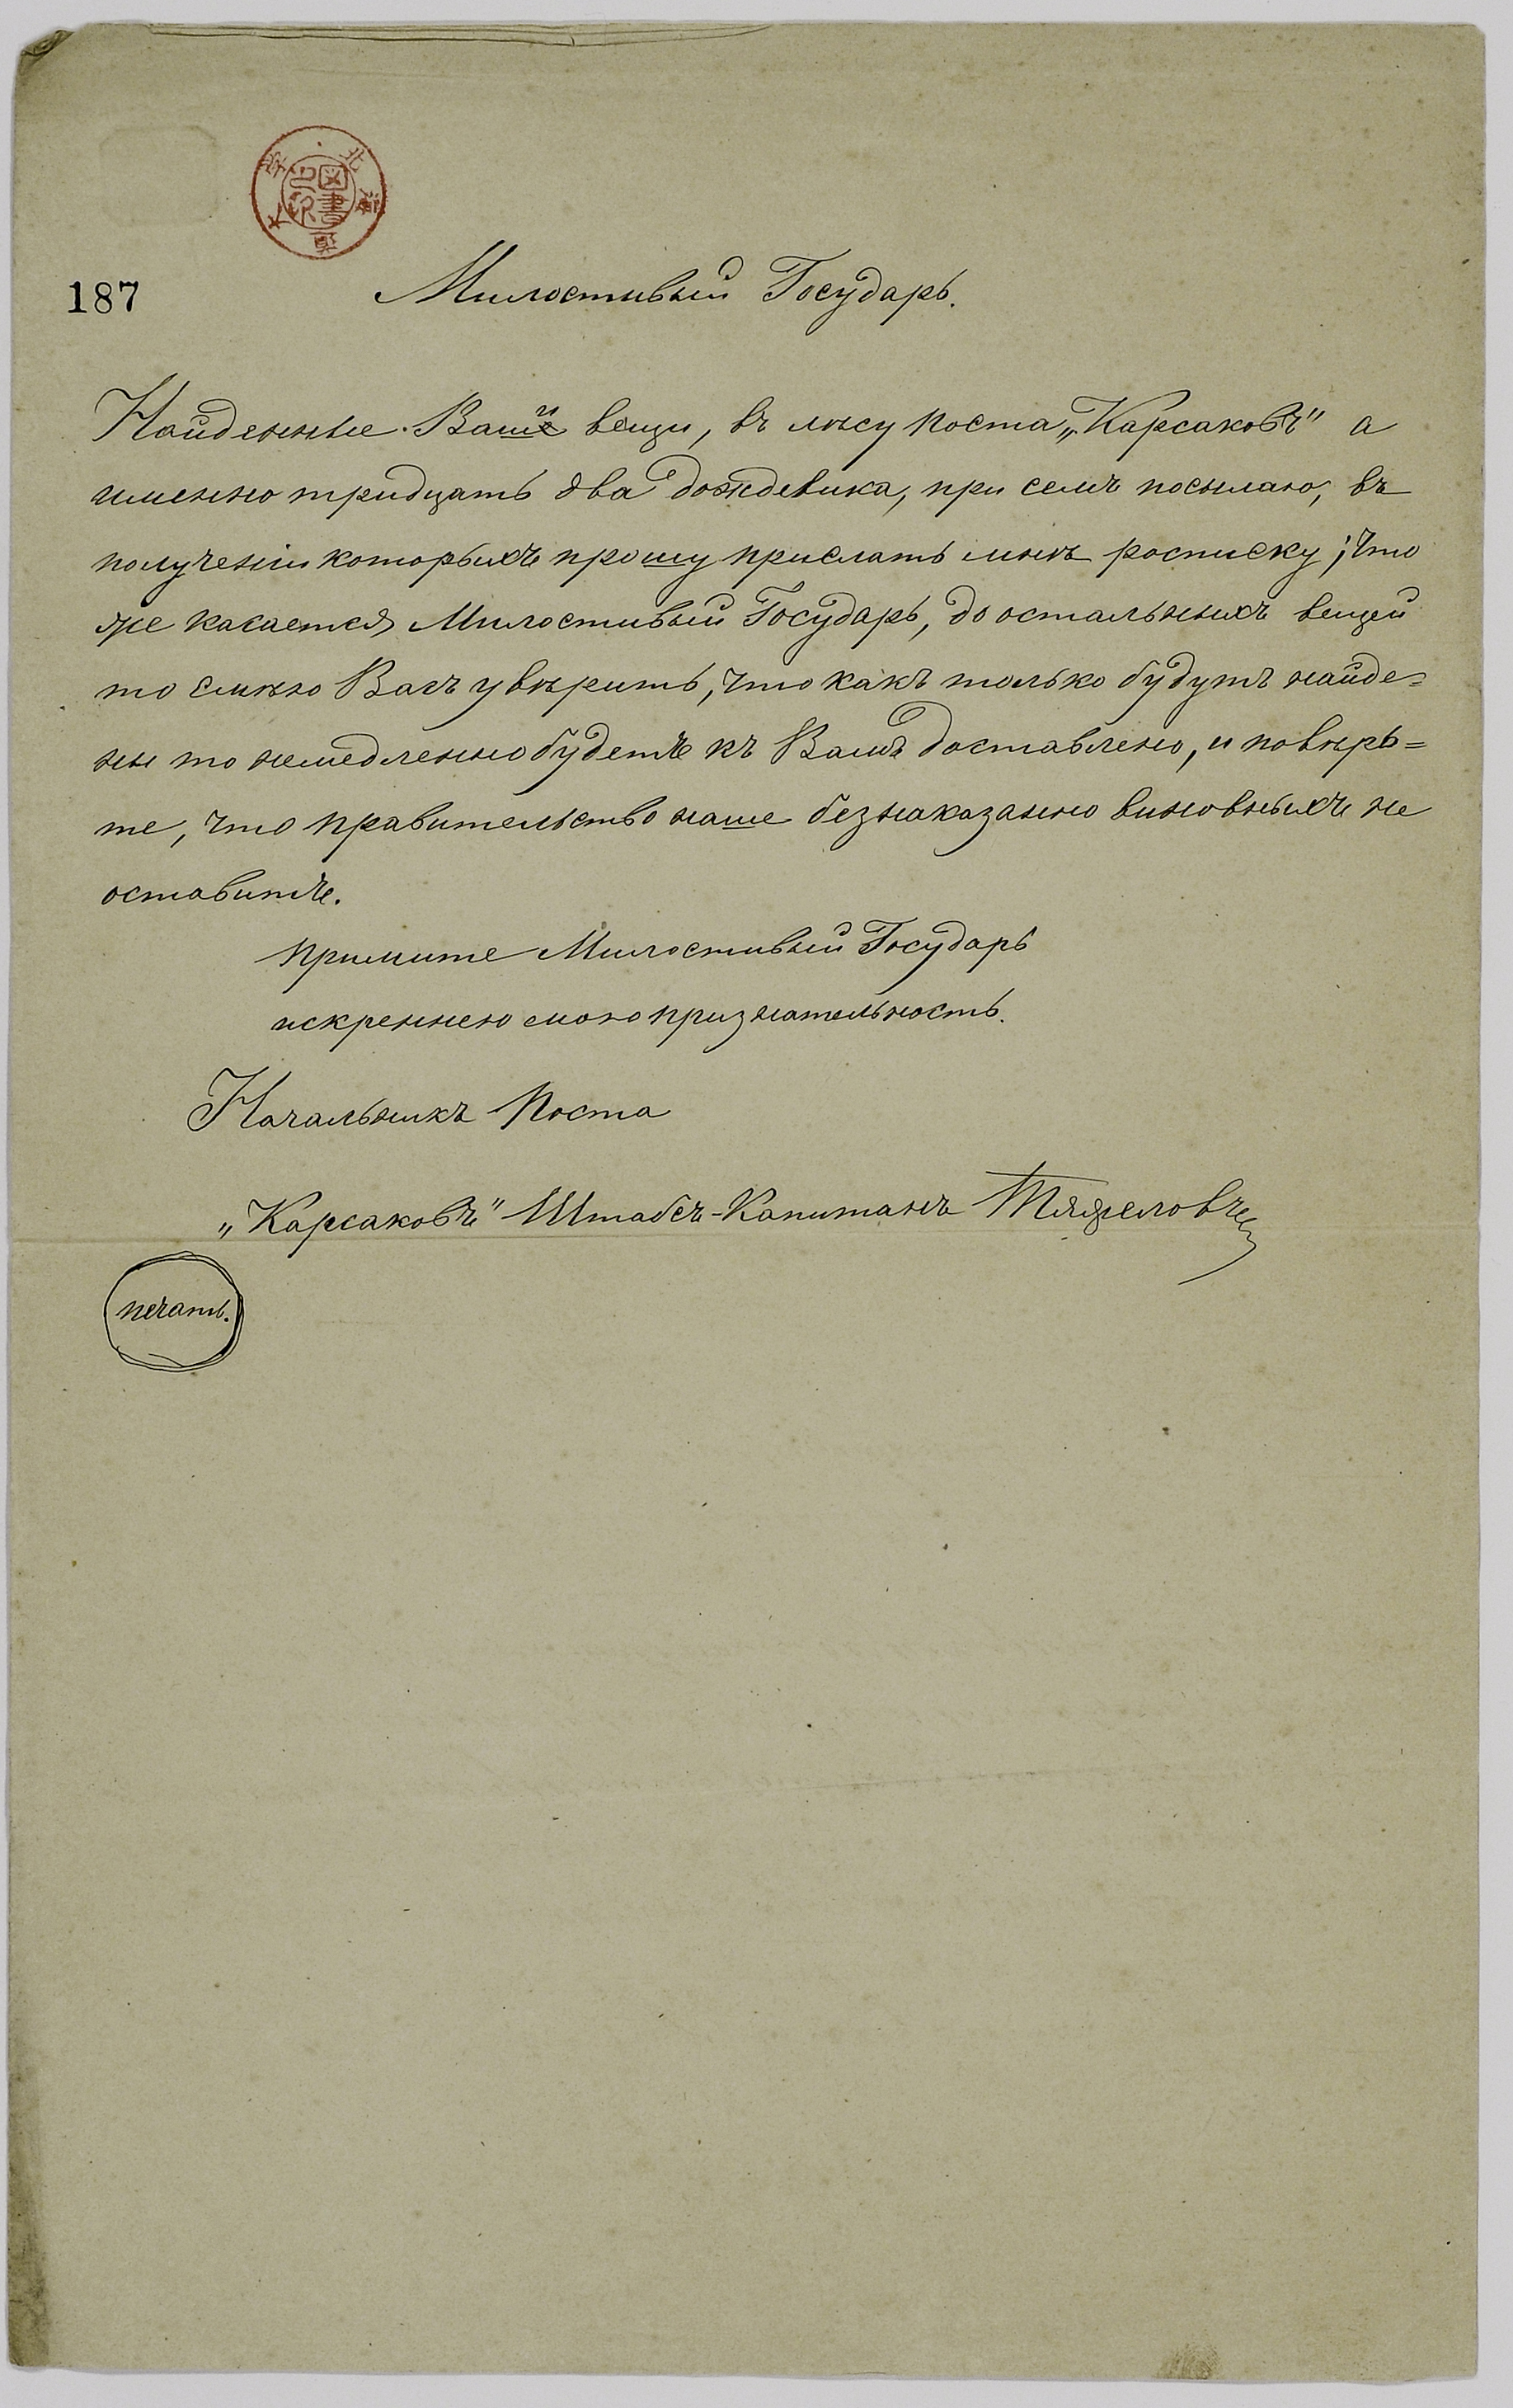 北海道
大学
図書
之印
187
Милостивый Государь.
Найденные Ваши вещи, въ лѣсу поста „Карсаковъ" а
именно тридцать два дождевика, при семъ посылаю, въ
полученіи которыхъ прошу прислать мнѣ росписку; что
же касается Милостивый Государь, до остальныхъ вещей
то смѣю Васъ увѣрить, что какъ только будутъ найде=
ны то немедленно будетъ къ Вамъ доставлено, и повѣрь=
те, что правительство наше безнаказанно виновныхъ не
оставитъ.
Примите Милостивый Государь
искреннею мою признательность.
Начальникъ Поста
„Карсаковъ" Штабсъ-Капитанъ Тяжеловъ
печать.